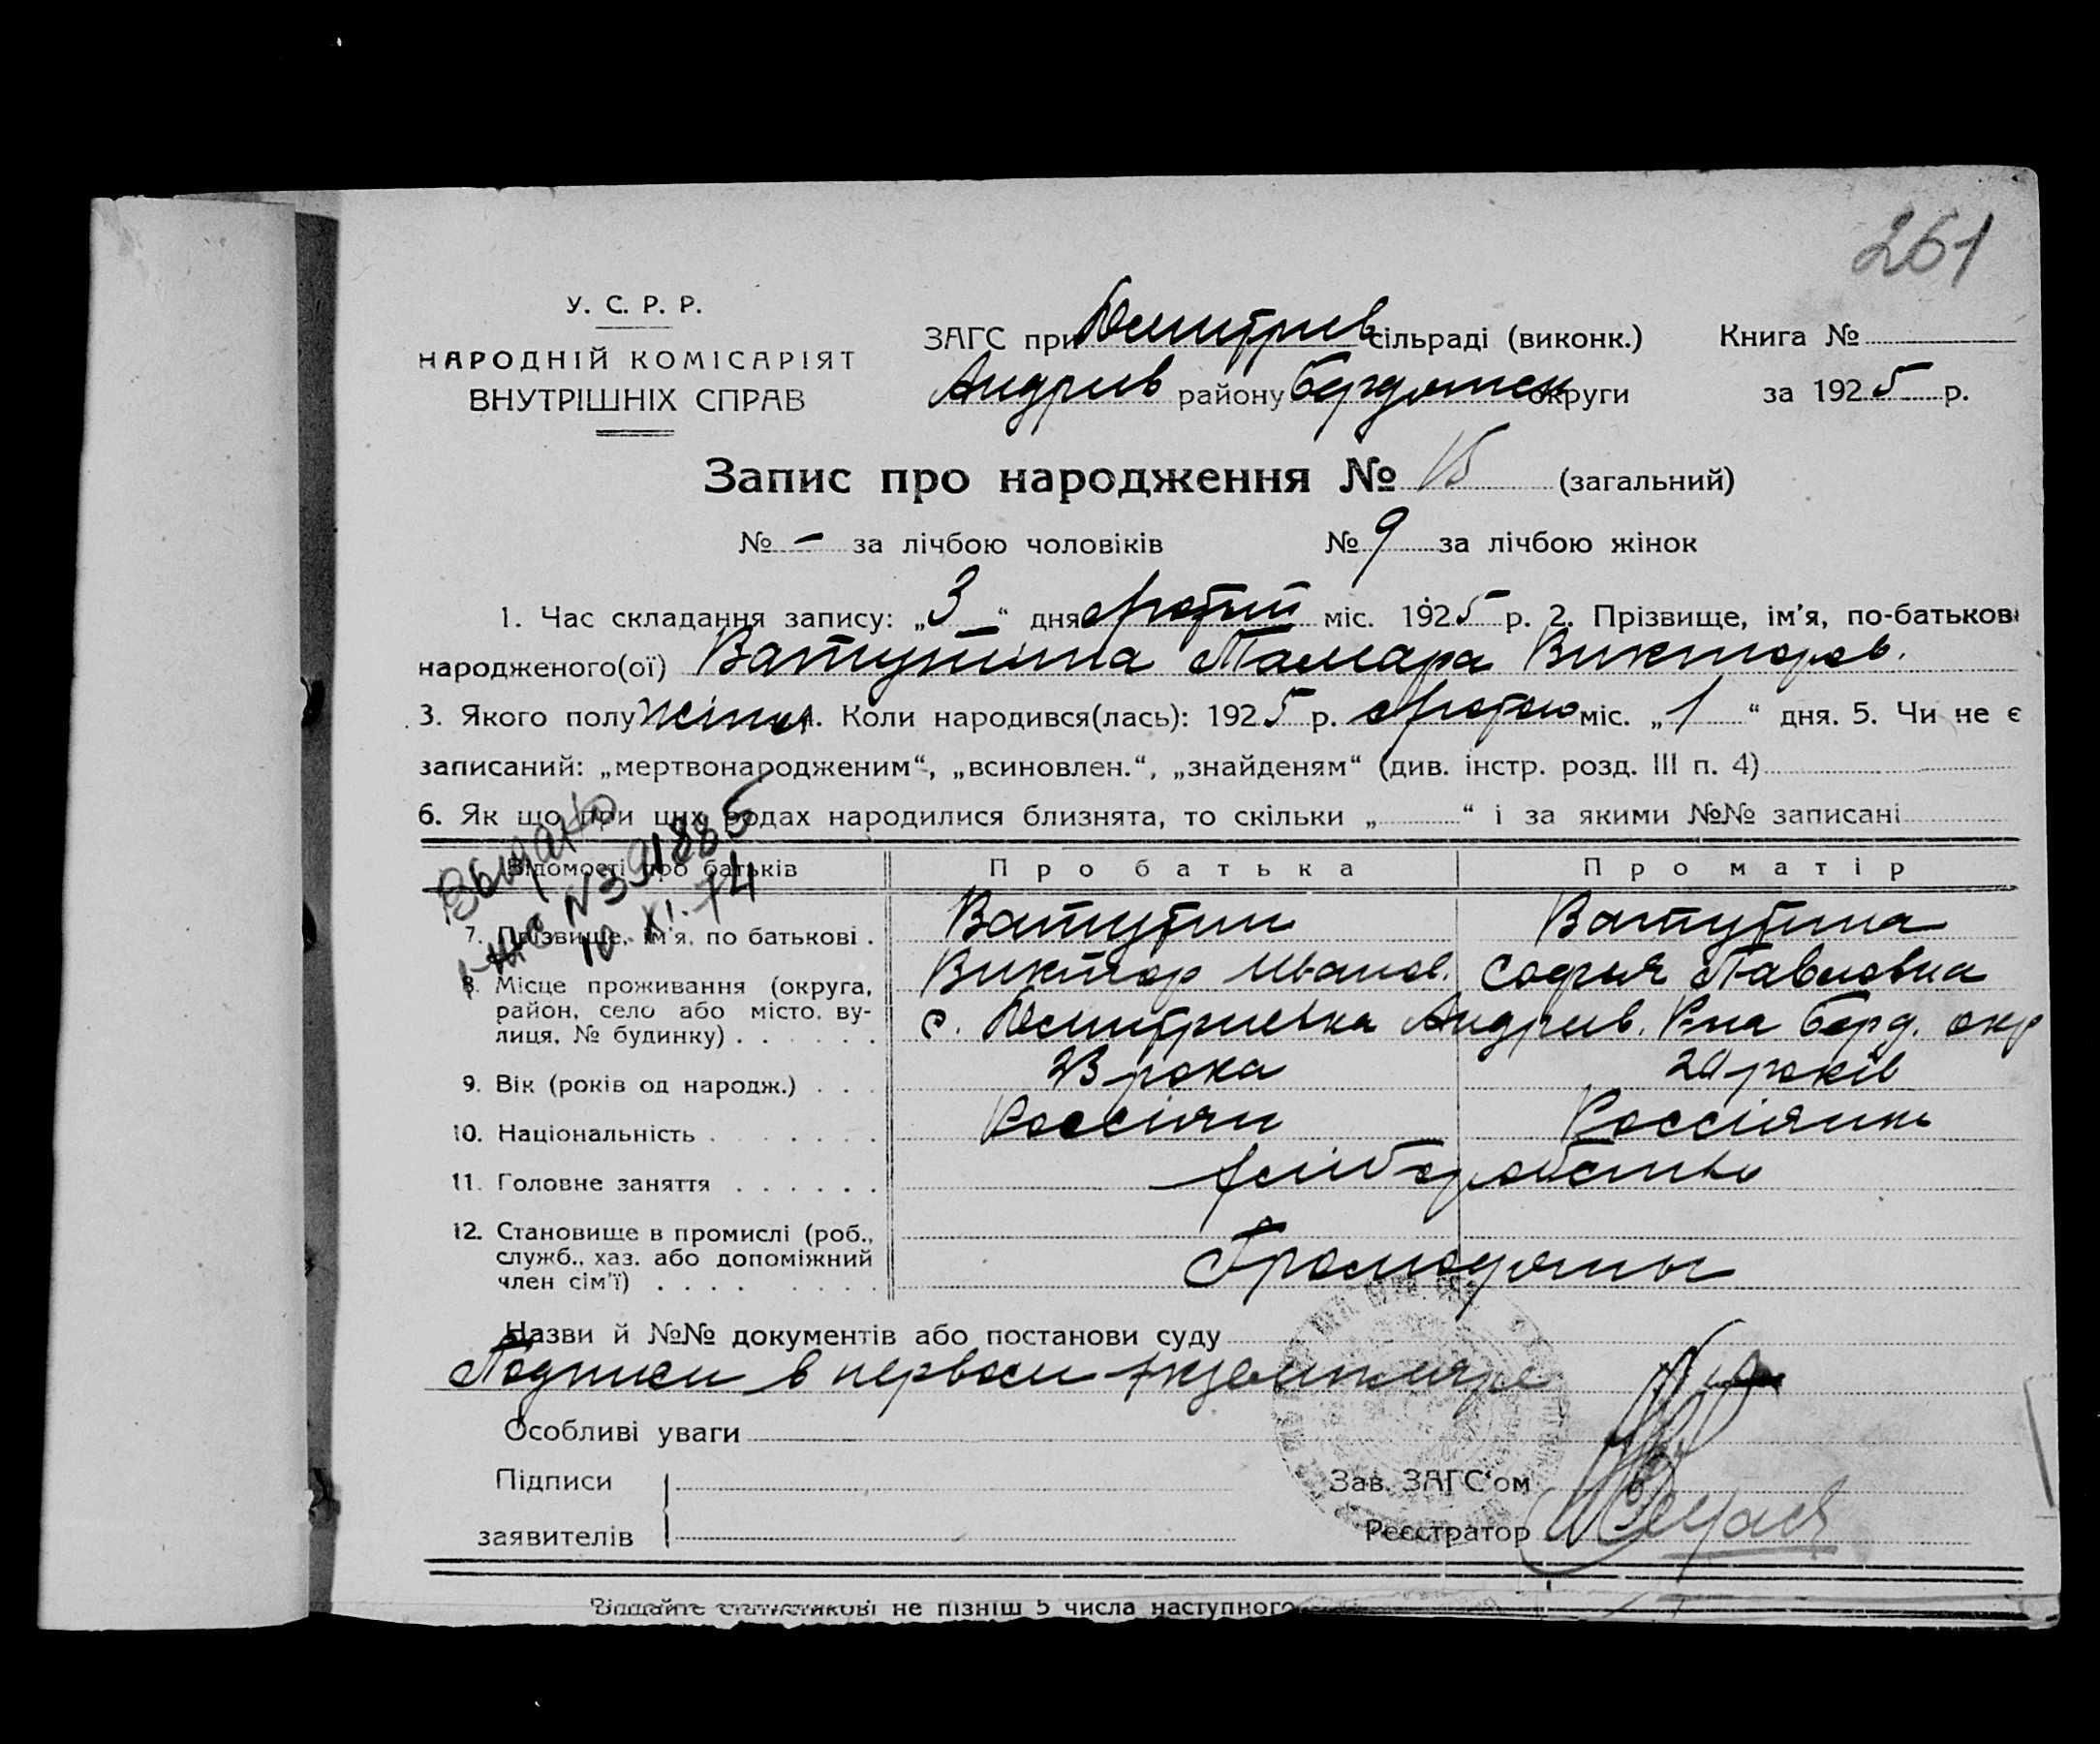 261
У. С. Р. Р.
НАРОДНІЙ КОМІСАРІЯТ
ВНУТРІШНІХ СПРАВ
ЗАГС при Дмитрів сільраді (виконк.) Книга №
Андрив району Бердянск округи за 1925 р.
Запис про народження № 15 (загальний)
№ – за лічбою чоловіків № 9 за лічбою жінок
1. Час складання запису: „3“ дня міс. 1925 р. 2. Прізвище, ім’я, по-батькові
народженого(ої) Ватутина Тамара Викторов.
3. Якого полу жіноч. 4. Коли народився(лась): 1925 р. лютого міс. „1“ дня. 5. Чи не є
записаний: „мертвонародженим“, „всиновлен.“, „знайденям“ (див. інстр. розд. III п. 4)
6. Як що при цих родах народилися близнята, то скільки „ “ і за якими №№ записані
Выдано
№ 391886
10 XI. 74
Відомості про батьків Про батька Про матір
7. Прізвище, ім’я, по батькові . Ватутин Ватутина
Виктор Иванов. Софья Павловна
8. Місце проживання (округа,
район, село або місто, ву-
лиця, № будинку) . . . . . . с. Дмитриевка Андрив. Р-на Берд. окр
9. Вік (років од народж.) . . . 23 рока 20 років
10. Національність . . . . . . . Россіян Россіянка
11. Головне заняття . . . . . . хліборобство
12. Становище в промислі (роб.,
служб., хаз. або допоміжний
член сім’ї) . . . . . . . . Громодяны
Назви й №№ документів або постанови суду
Подписи в первом экземпляре
Особливі уваги
Підписи
заявителів
Зав. ЗАГС‘ом
Реєстратор
статистикові не пізніш 5 числа наступного